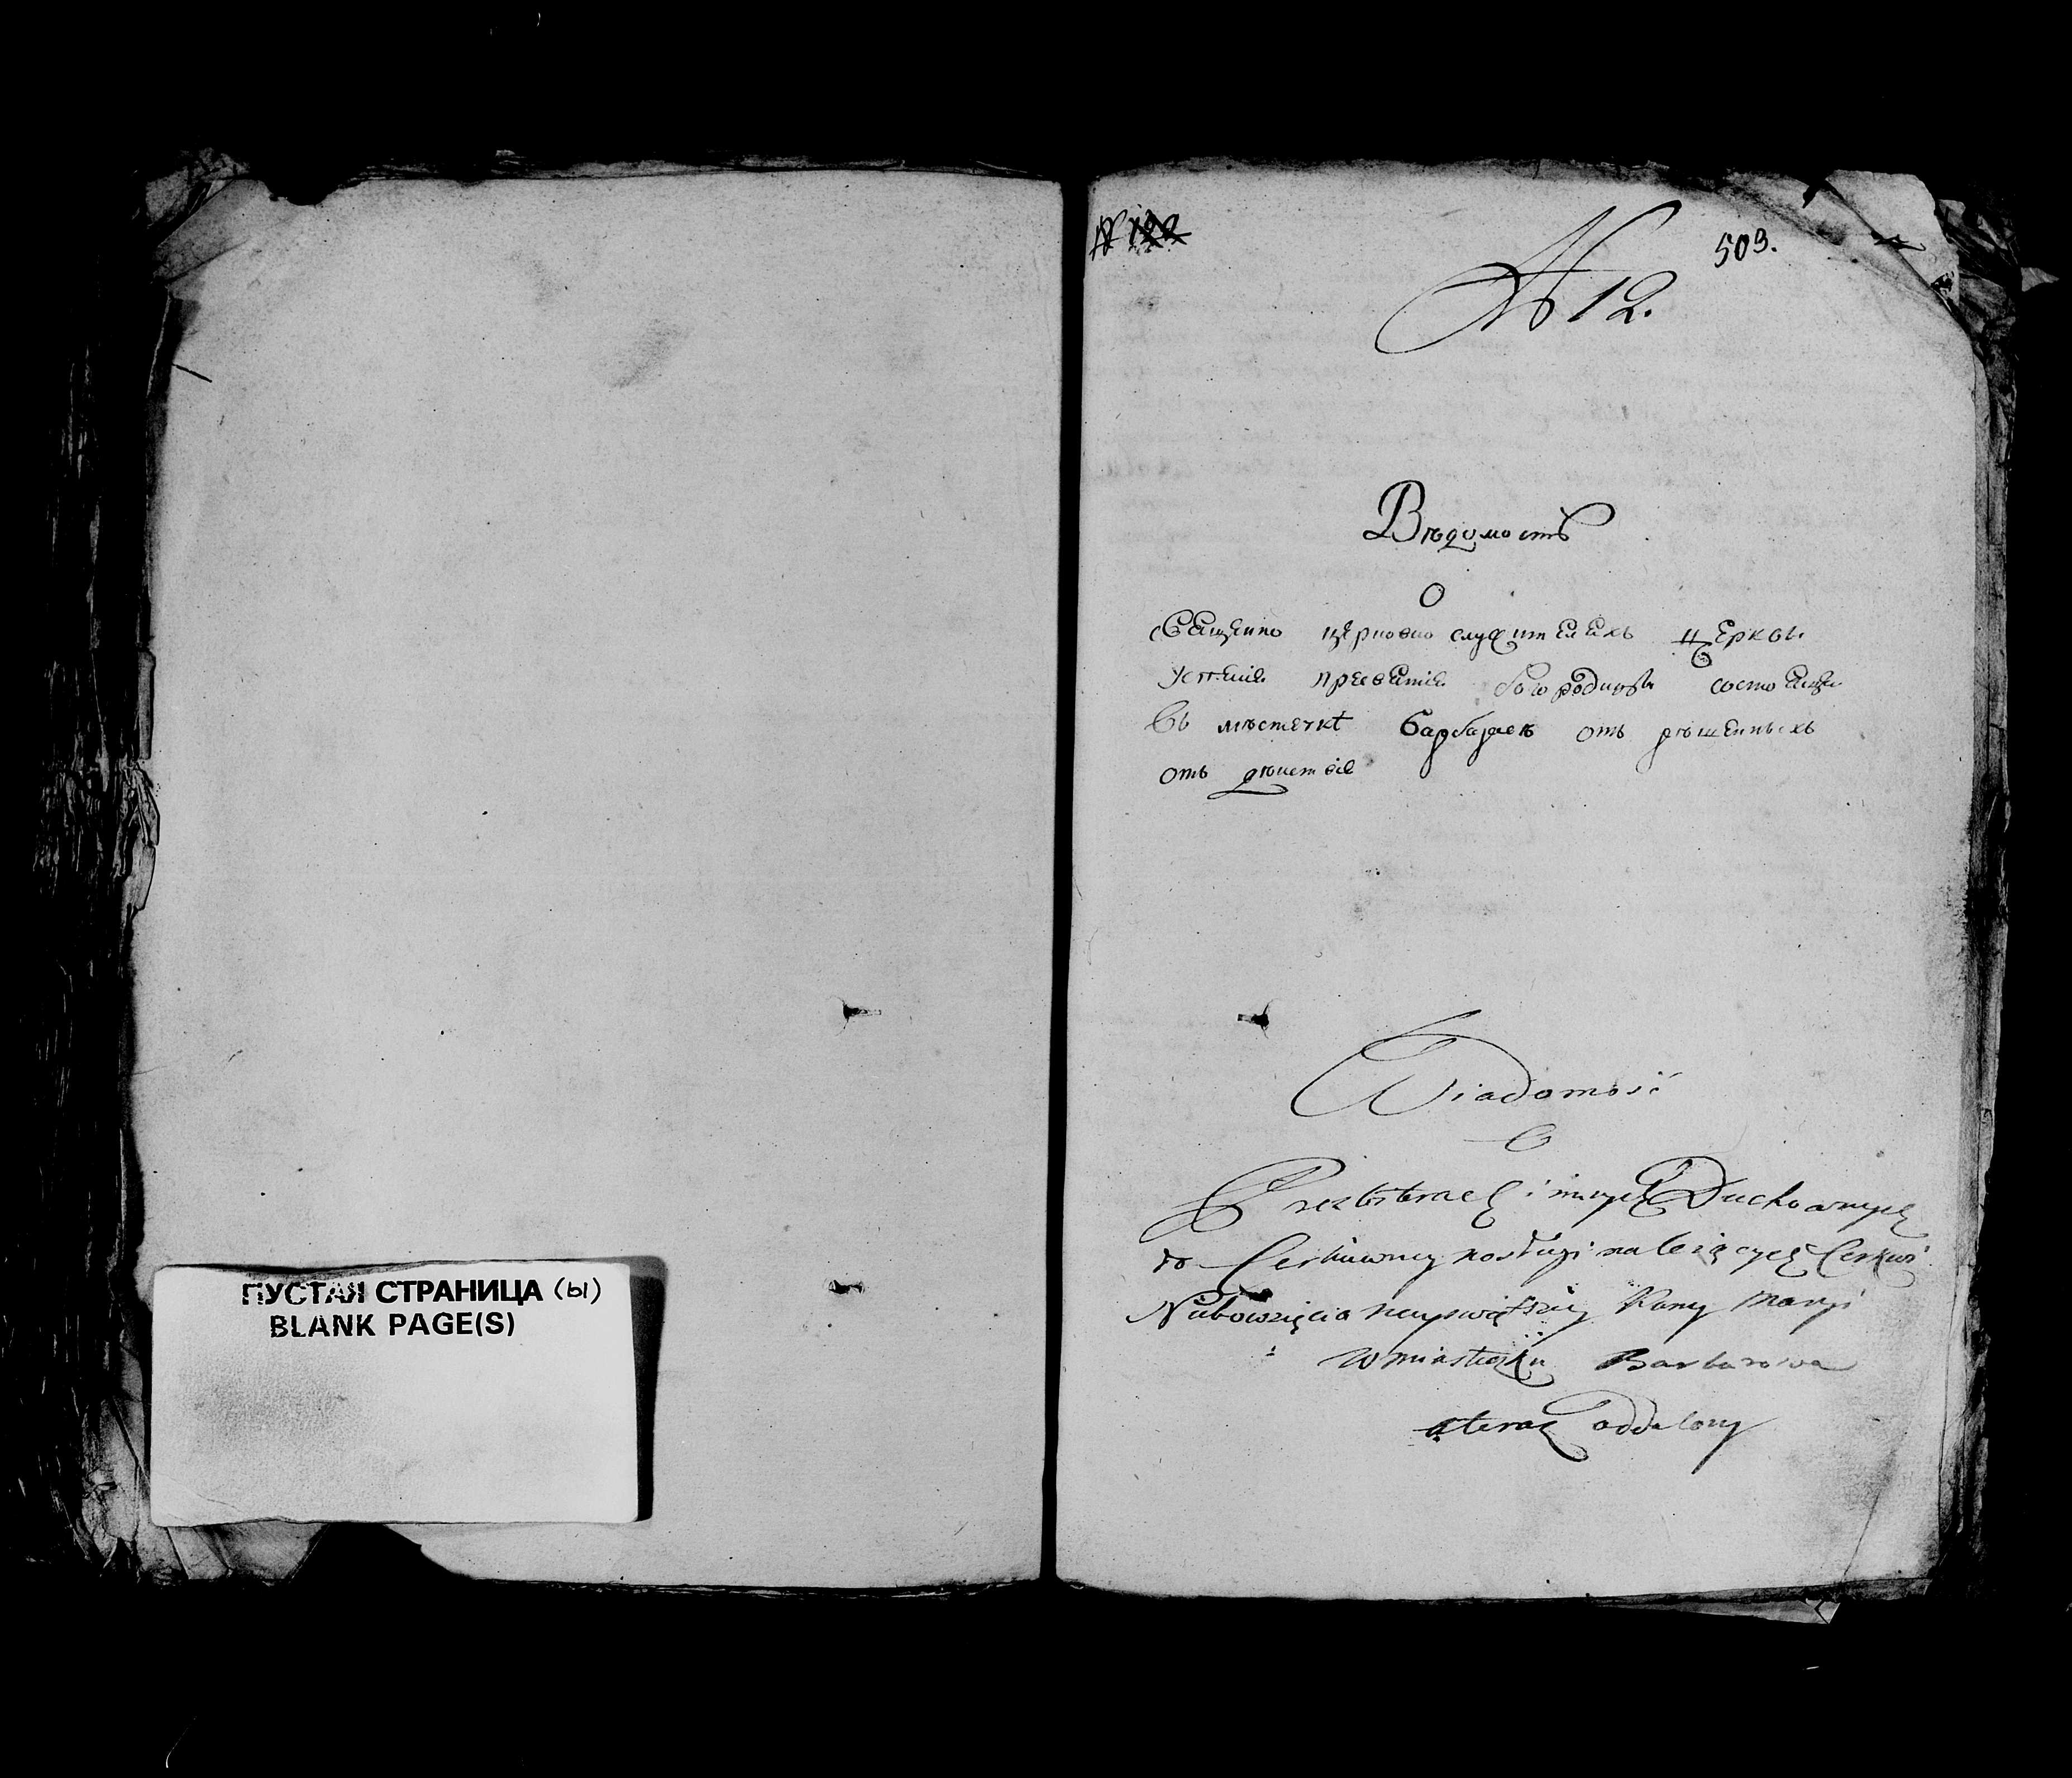 ПУСТАЯ СТРАНИЦА (Ы)
BLANK PAGE(S)
№ 122
503.
№ 12.
Вѣдомость
О
Священно церковно служителяхъ церкви
успение пресвятие богородицы состоящи
въ мѣстечкѣ Барбаровѣ отъ рѣшенныхъ
отъ дѣиствие
Wiadomość
O
Prezbiterach i innych Duchownych
do Cerkiewney posługi należących Cerkwi
Naywiętszey Panny Maryi
w miasteczku Barbarowa
ateraz oddalony